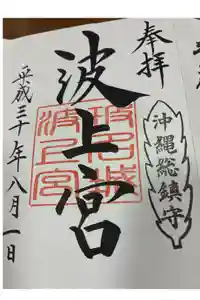 奉拝
沖縄総鎮守
波上宮
平成三十年八月一日